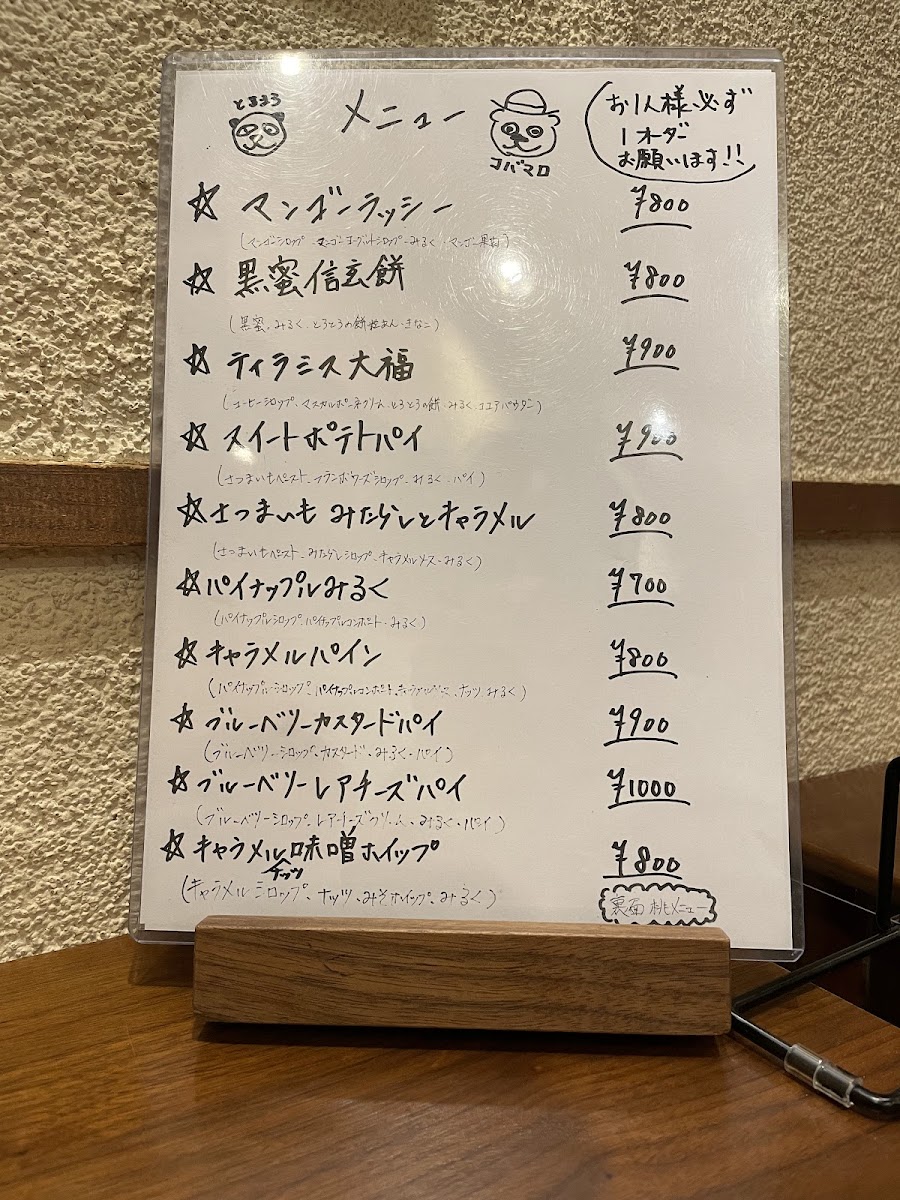 とろまろ
メニュー
コバマロ
お1人様必ず
1オーダー
お願いします!!
☆ マンゴーラッシー ¥800
(マンゴーシロップ・マンゴーヨーグルトシロップ・みるく・マンゴー果肉)
☆ 黒蜜信玄餅 ¥800
(黒蜜・みるく・とろとろの餅・粒あん・きなこ)
☆ ティラミス大福 ¥900
(コーヒーシロップ、マスカルポーネクリーム、とろとろの餅、みるく、ココアパウダー)
☆ スイートポテトパイ ¥900
(さつまいもペースト、フランボワーズシロップ、みるく、パイ)
☆ さつまいも みたらしとキャラメル ¥800
(さつまいもペースト、みたらしシロップ、キャラメルソース、みるく)
☆ パイナップルみるく ¥700
(パイナップルシロップ、パイナップルコンポート、みるく)
☆ キャラメルパイン ¥800
(パイナップルシロップ、パイナップルコンポート、キャラメルソース、ナッツ、みるく)
☆ ブルーベリーカスタードパイ ¥900
(ブルーベリーシロップ、カスタード、みるく、パイ)
☆ ブルーベリーレアチーズパイ ¥1000
(ブルーベリーシロップ、レアチーズクリーム、みるく、パイ)
☆ キャラメルナッツ味噌ホイップ ¥800
(キャラメルシロップ、ナッツ、みそホイップ、みるく)
裏面 桃メニュー